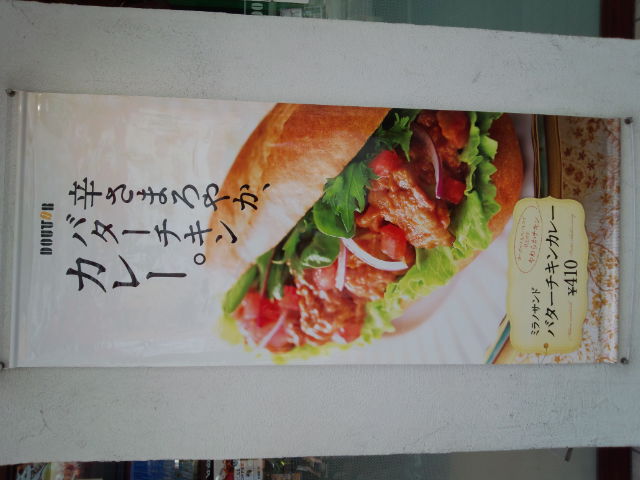 DOUTOR
辛さまろやか、
バターチキン
カレー。
やわらかチキン
ミラノサンド
バターチキンカレー
¥410